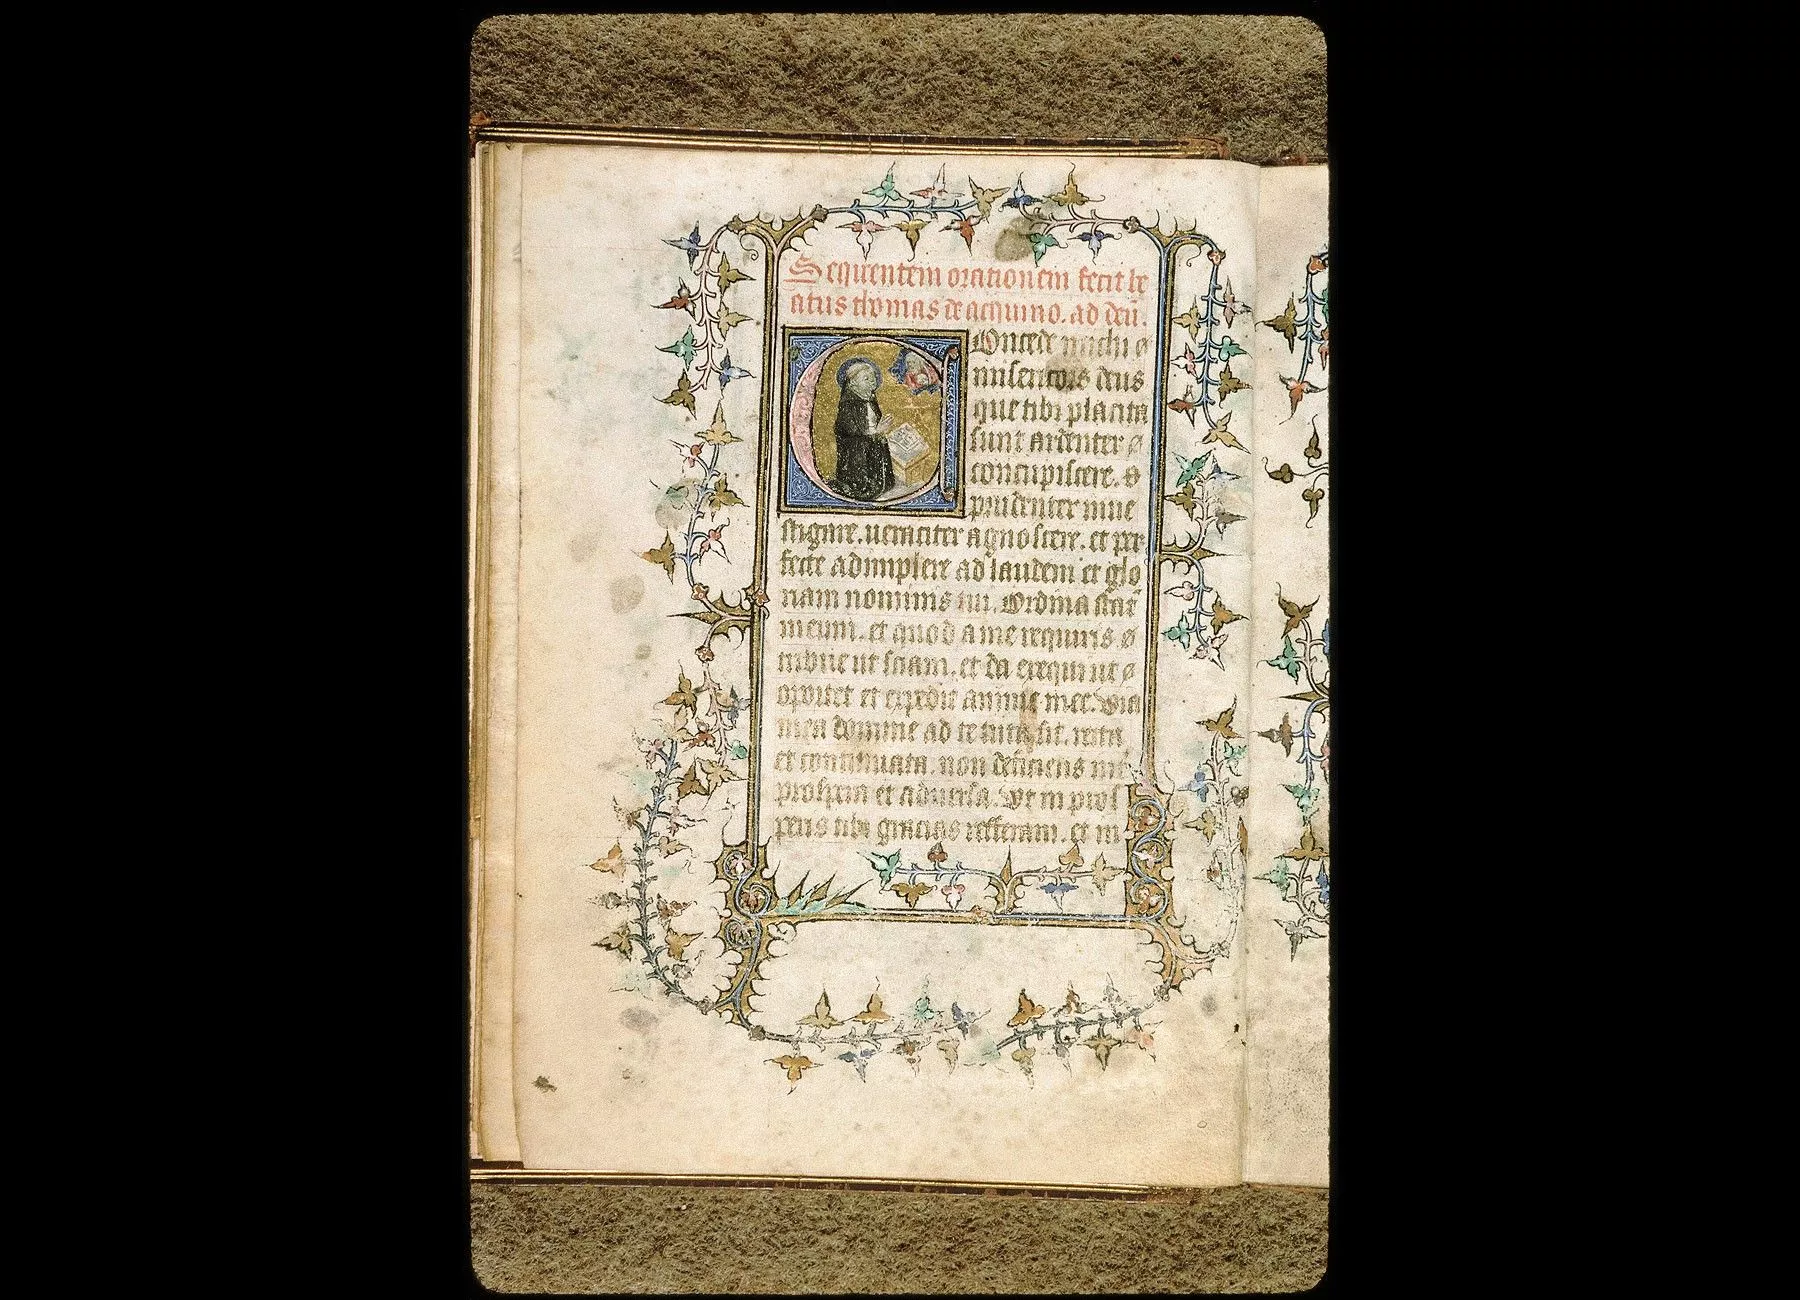 Sequentem orationem fecit be
atus thomas de acquino. ad deū.
Concede michi
misericors deus
que tibi placita
sunt ardenter
concupiscere. &
prudenter inue
stigare. ueraciter agnoscere. et per
fecte adimplere ad laudem et glo
riam nominis tui. Ordina statū
meum. et quod a me requiris
tribue ut sciam. et da exequi ut
oportet et expedit anime mee. Via
mea domine ad te tuta sit. recta
et continuata. non deficiens int̄
prospera et aduersa. Vt in pros
peris tibi gracias refferam. et in